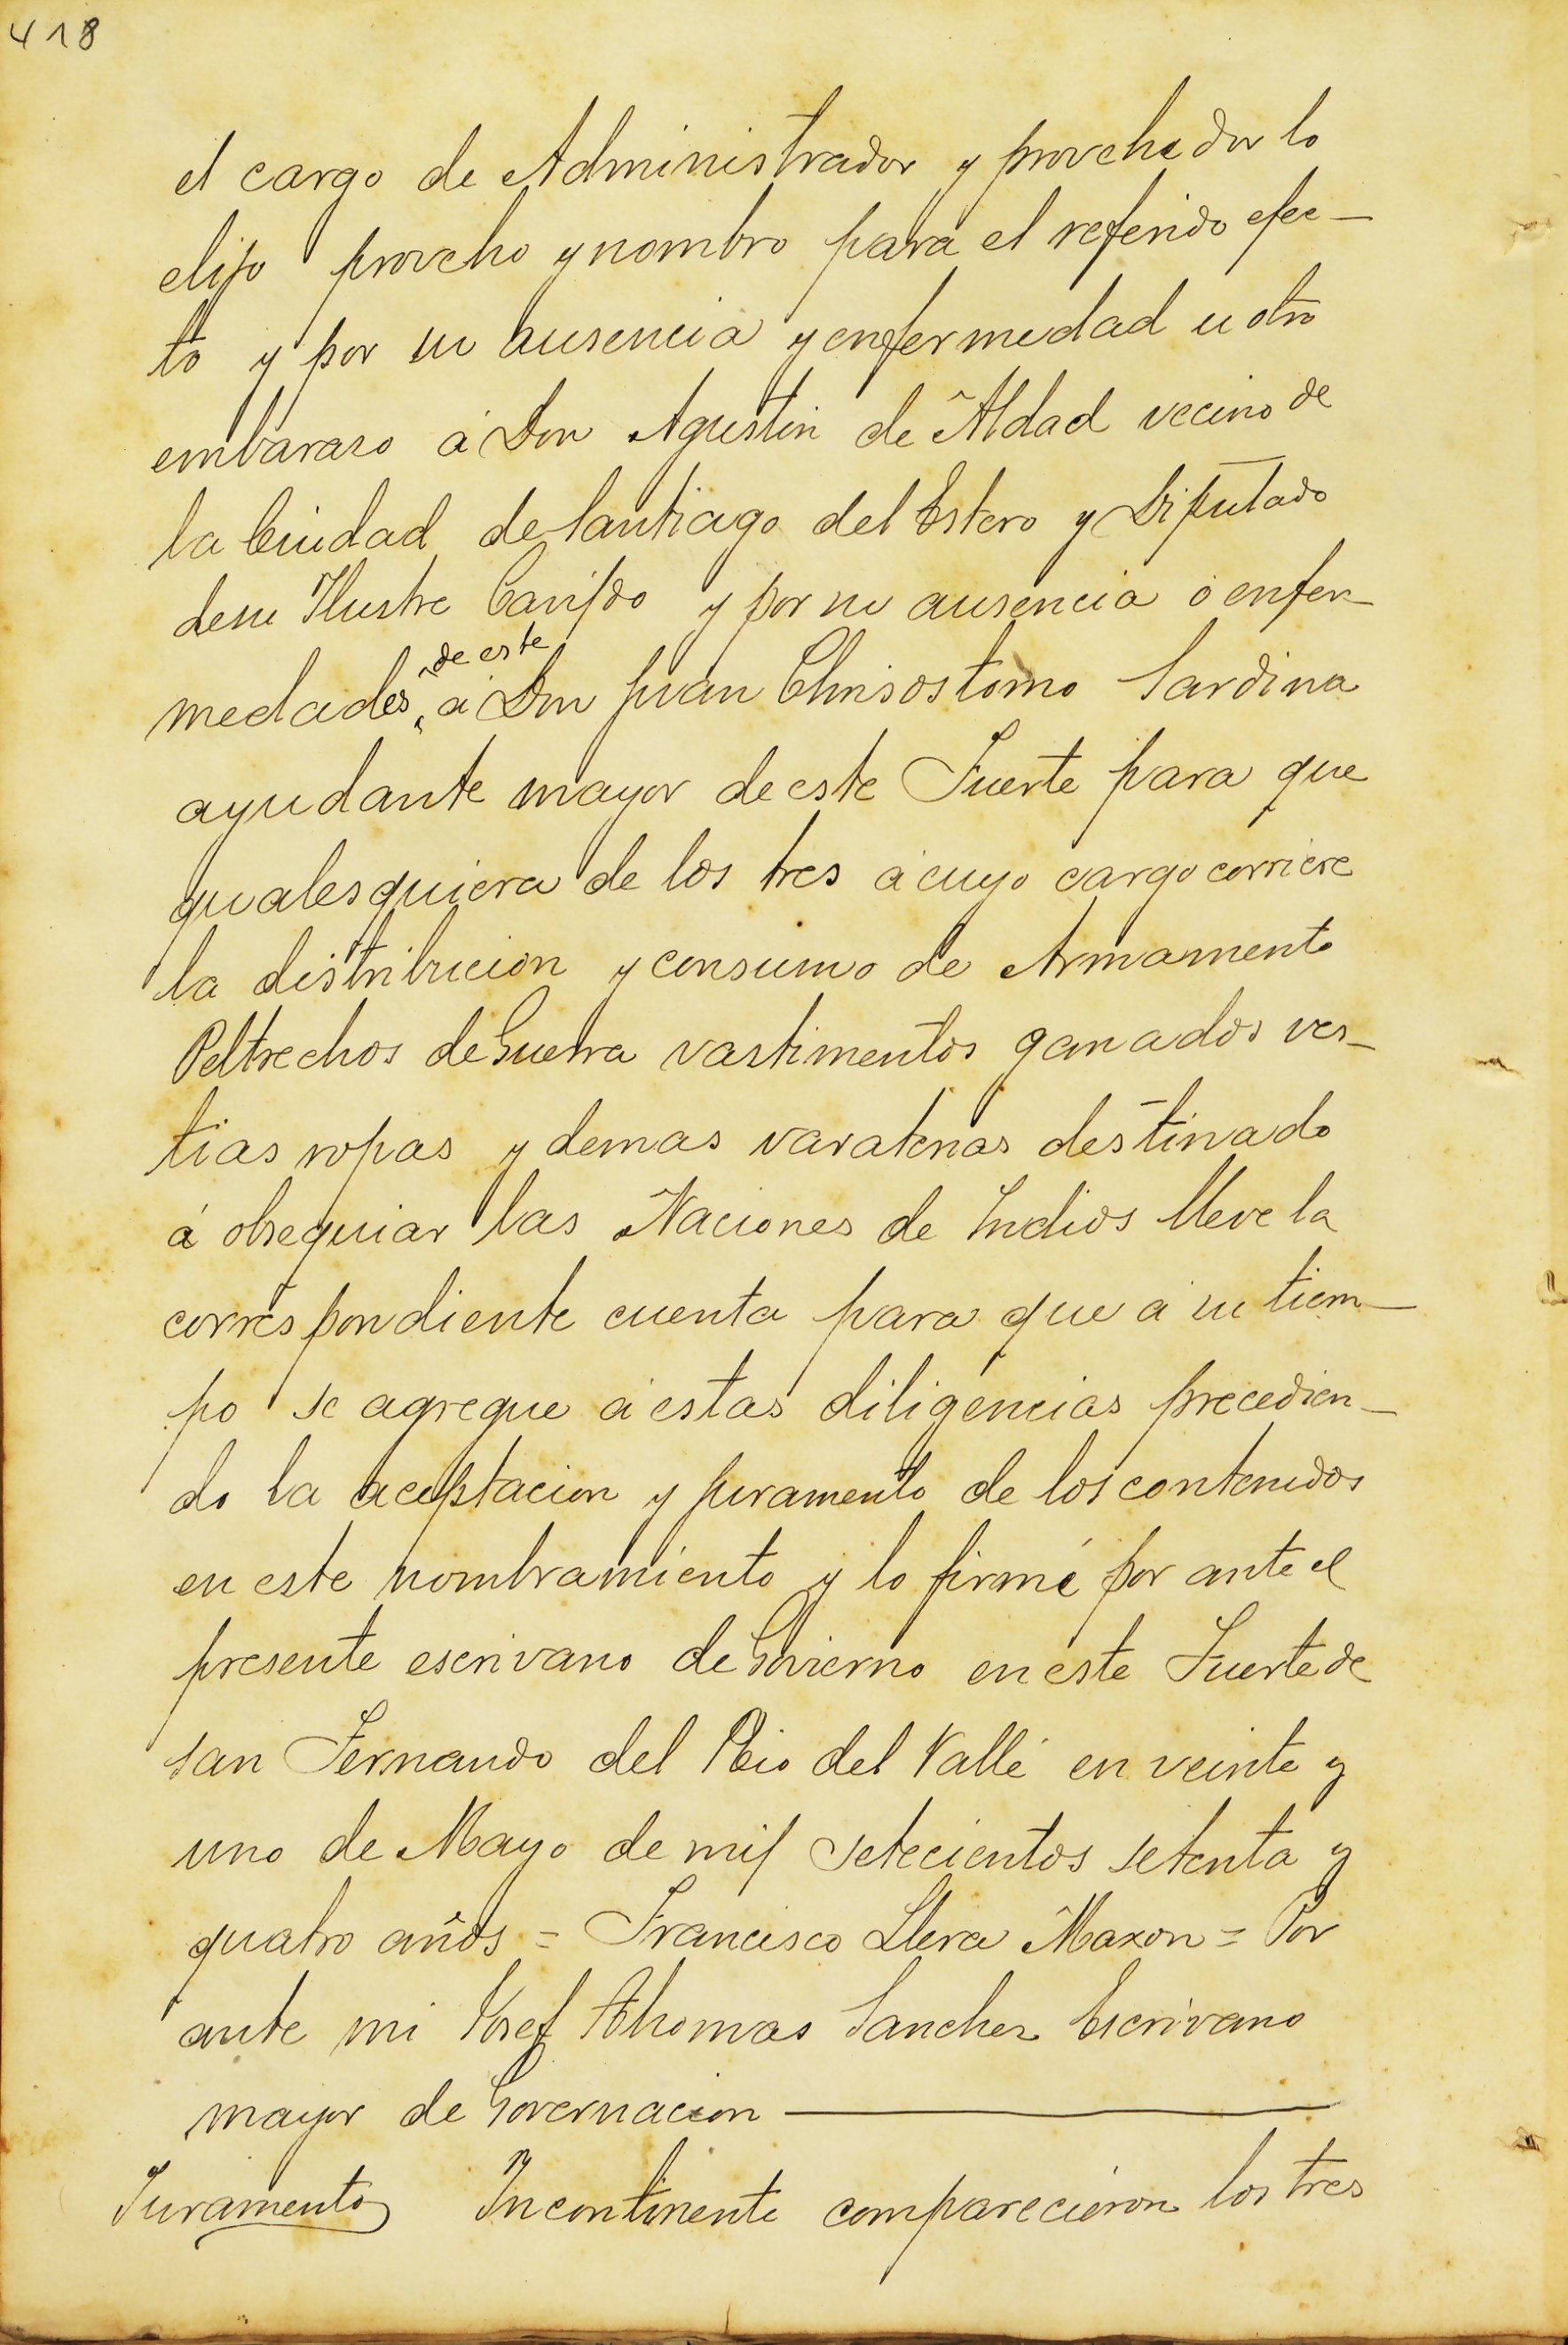 418
el cargo de Administrador y provehedor lo
elijo proveho y nombro para el referido efec-
to y por su ausencia y enfermedad u otro
embaraso á Don Agustin de Aldad vecino de
la Ciudad de Santiago del Estero y Diputado
de su Ilustre Cavildo y por su ausencia ó enfer-
medades de este á Don Juan Chrisostomo Sardina
ayudante mayor de este Fuerte para que
qualesquiera de los tres á cuyo cargo corriere
la distribucion y consumo de Armamento
Peltrechos de Guerra vastimentos ganados ves-
tias ropas y demas varaterias destinado
á obsequiar las Naciones de Indios lleve la
correspondiente cuenta para que á su tiem-
po se agregue á estas diligencias precedien-
do la aceptacion y juramento de los contenidos
en este nombramiento y lo firmé por ante el
presente escrivano de Govierno en este Fuerte de
San Fernando del Rio del Valle en veinte y
uno de Mayo de mil setecientos setenta y
quatro años = Francisco Llera Maxon = Por
ante mi Josef Thomas Sanchez Escrivano
mayor de Governacion
Juramento Yncontinente comparecieron los tres